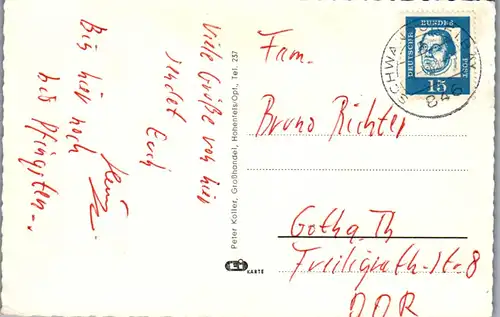 Viele Grüße von hier
sendet Euch
Bin hier noch
bis Pfingsten..
Peter Koller, Großhandel, Hohenfels/Opf., Tel. 237
KARTE
Fam.
Bruno Richter
Gotha, Th
Freiligrath-Str. 8
DDR
DEUTSCHE BUNDESPOST
15
SCHWA
846